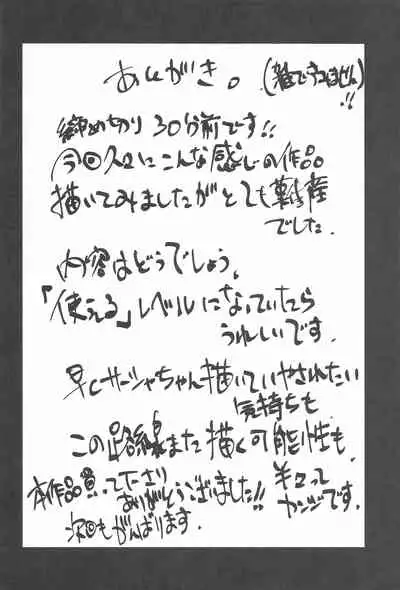 あとがき。(雑ですみません)!!
締め切り30分前です!!
今回久々にこんな感じの作品
描いてみましたがとても難産
でした。
内容はどうでしょう。
「使える」レベルになっていたら
うれしいです。
早くサーシャちゃん描いていやされたい
気持ちも
この路線また描く可能性も
半々って
カンジです。
本作品買って下さり
ありがとうございました!!
次回もがんばります。